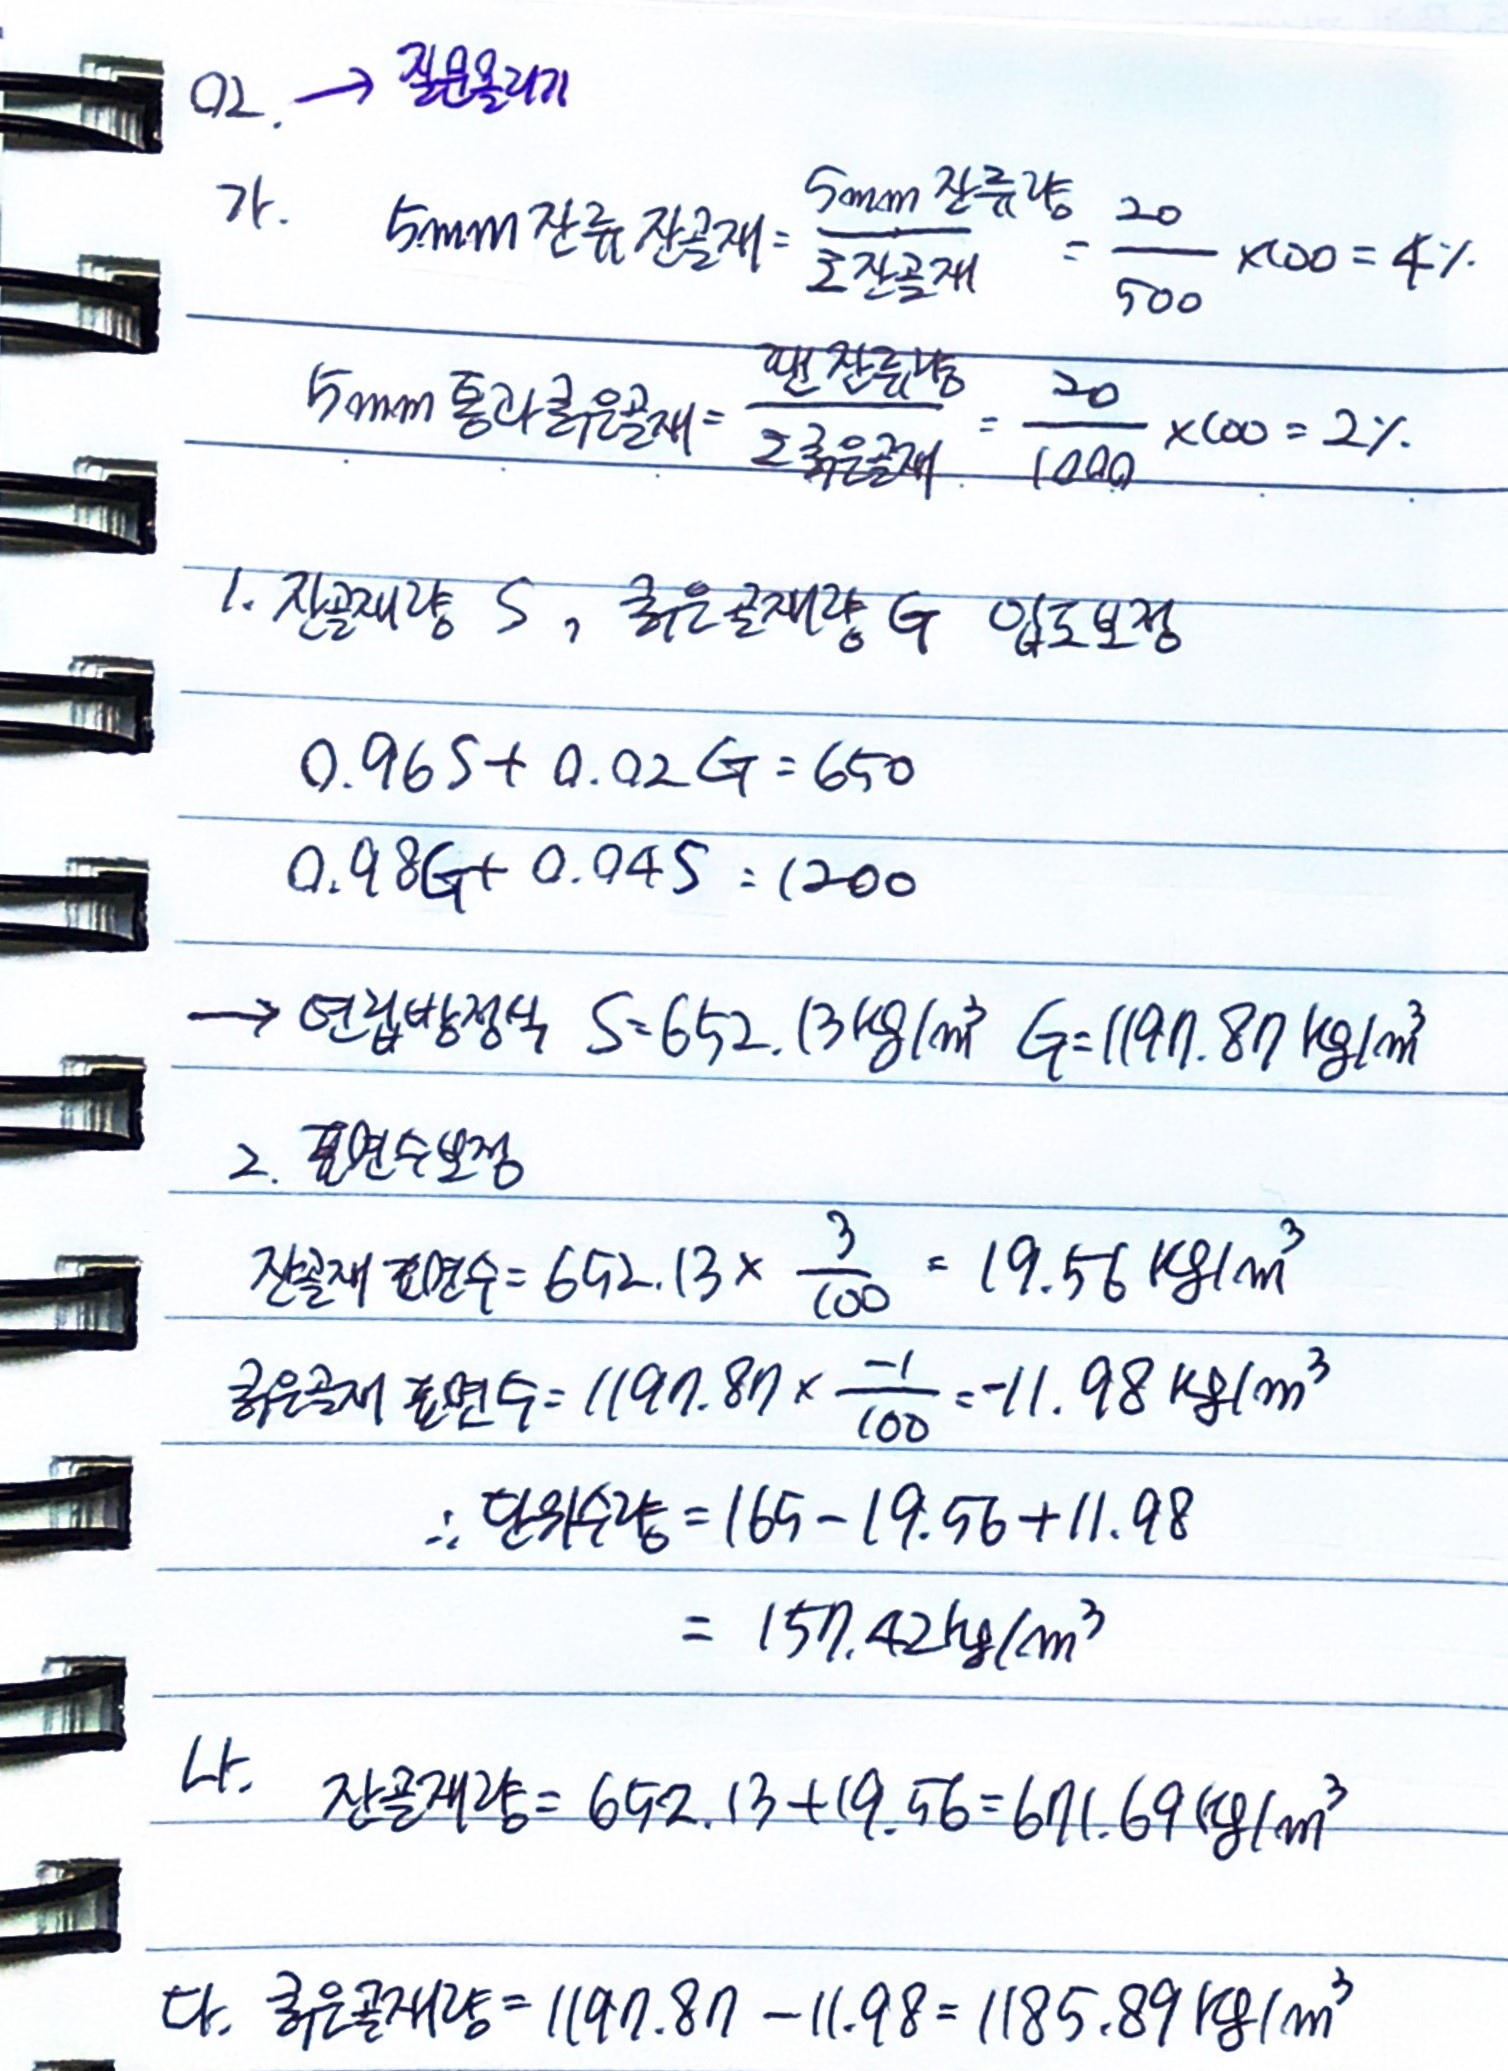 02. → 질문올리기
가. 5mm 잔류 잔골재 = 5mm 잔류량 / Σ잔골재 = 20 / 500 ×100 = 4%
5mm 통과 굵은골재 = 팬 잔류량 / Σ굵은골재 = 20 / 1000 ×100 = 2%.
1. 잔골재량 S, 굵은골재량 G 입도보정
0.96S + 0.02G = 650
0.98G + 0.04S = 1200
→ 연립방정식 S=652.13kg/m³ G=1197.87kg/m³
2. 표면수보정
잔골재 표면수 = 652.13 × 3/100 = 19.56 kg/m³
굵은골재 표면수 = 1197.87 × -1/100 = -11.98 kg/m³
∴ 단위수량 = 165 - 19.56 + 11.98
= 157.42kg/m³
나. 잔골재량 = 652.13 + 19.56 = 671.69kg/m³
다. 굵은골재량 = 1197.87 - 11.98 = 1185.89kg/m³